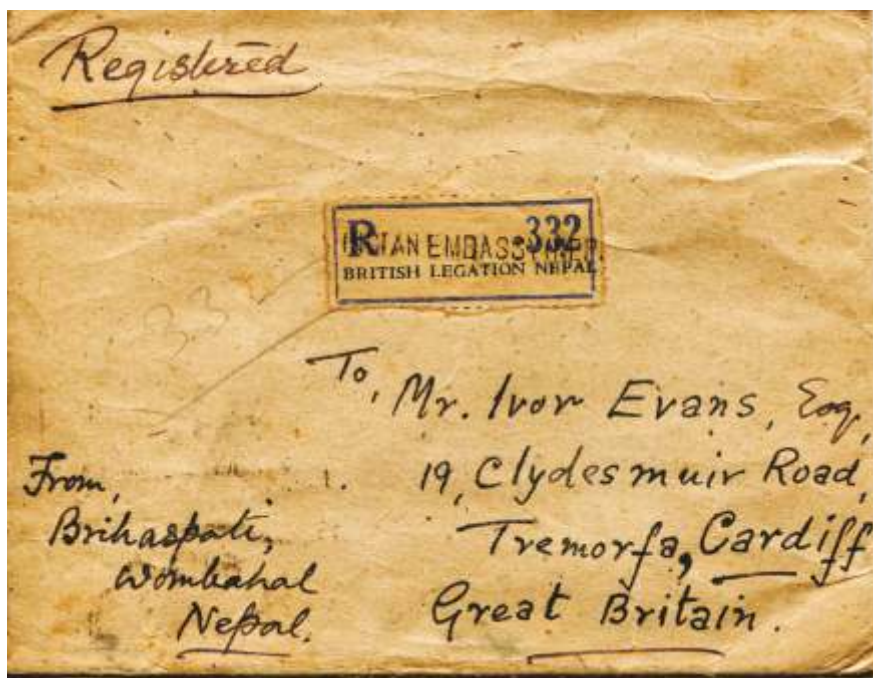 Registered
R 332
INDIAN EMBASSY NEPAL
BRITISH LEGATION NEPAL
332
To,
Mr. Ivor Evans, Esq,
19, Clydesmuir Road,
Tremorfa, Cardiff
Great Britain.
From,
Brihaspati,
Wombahal
Nepal.